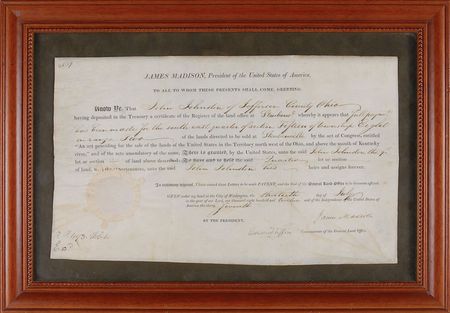 JAMES MADISON, President of the United States of America,
TO ALL TO WHOM THESE PRESENTS SHALL COME, GREETING.
Know Ye, That John Johnston of Jefferson County Ohio
having deposited in the Treasury a certificate of the Register of the land office at it appears that full pay
made for the south east quarter of section fifteen of township
in range of the lands directed to be sold at Steubenville by the act of Congress, entitled
"An act providing for the sale of the lands of the United States in the territory north west of the Ohio, and above the mouth of Kentucky
river," and of the acts amendatory of the same, There is granted, by the United States, unto the said John Johnston the
lot or section of land above described: To have and to hold the said quarter lot or section
of land, with the appurtenances, unto the said John Johnston his heirs and assigns forever.
In testimony whereof, I have caused these Letters to be made PATENT, and the Seal of the General Land Office to be hereunto affixed.
GIVEN under my hand at the City of Washington, the day of July
in the year of our Lord, one thousand eight hundred and and of the Independence of the United States of
America the thirty seventh
BY THE PRESIDENT,
James Madison
Commissioner of the General Land Office.